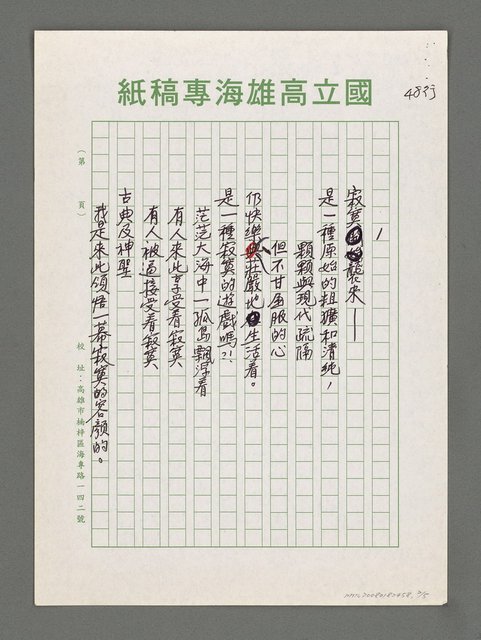 紙稿專海雄高立國
48行
（第　　頁）
1
寂寞襲來——
是一種原始的粗獷和清純，
顆顆與現代疏隔
但不甘屈服的心
仍快樂莊嚴地生活着。
是一種寂寞的遊戲嗎？！
茫茫大海中一孤島飄浮着
有人來此享受着寂寞
有人被逼接受着寂寞
古典及神聖
我是來此領悟一幕寂寞的容顏的。
校　址：高雄市楠梓區海專路一四二號